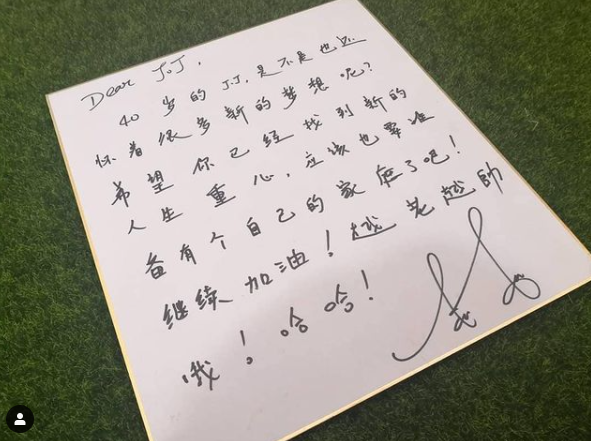 Dear J.J.
40 岁的 J.J. 是不是也还
怀着很多新的梦想呢?
希望你已经找到新的
人生重心,应该也要准
备有个自己的家庭了吧!
继续加油!越老越帅
哦!哈哈!